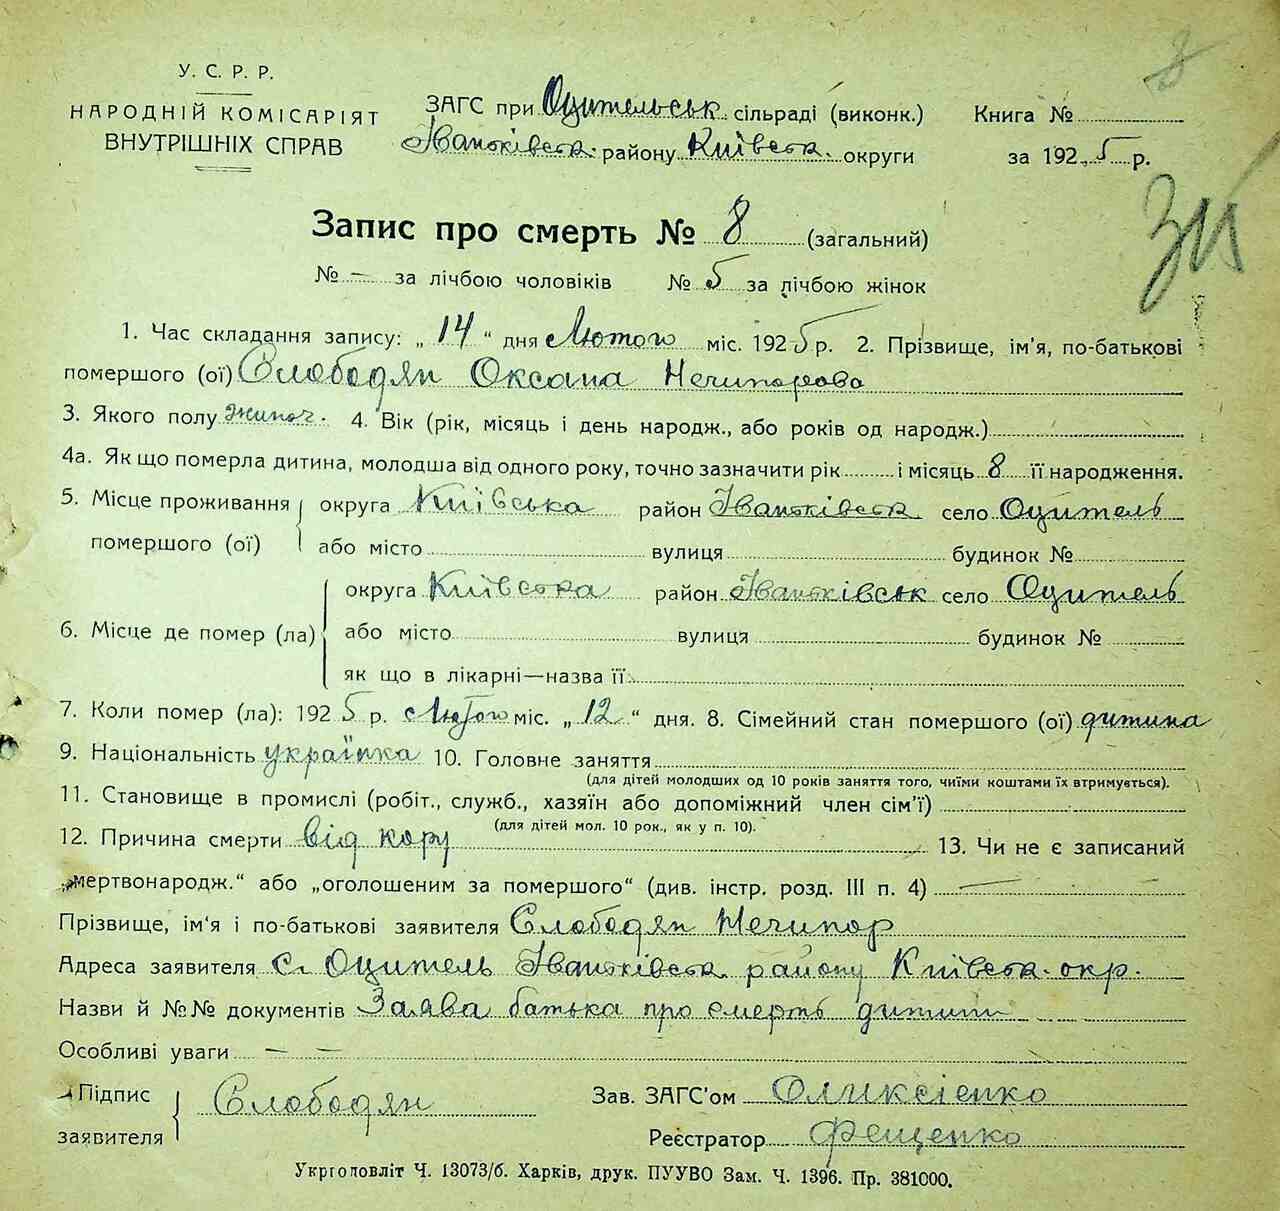 8
У. С. Р. Р.
НАРОДНІЙ КОМІСАРІЯТ
ВНУТРІШНІХ СПРАВ
ЗАГС при Оцительськ. сільраді (виконк.)
Іванківськ. району Київськ. округи
Книга №
за 1925 р.
Запис про смерть № 8 (загальний)
№ — за лічбою чоловіків № 5 за лічбою жінок
1. Час складання запису: „14“ дня Лютого міс. 1925 р. 2. Прізвище, ім'я, по-батькові
помершого (ої) Слободян Оксана Нечипорова
3. Якого полу жиноч. 4. Вік (рік, місяць і день народж., або років од народж.)
4а. Як що померла дитина, молодша від одного року, точно зазначити рік і місяць 8 її народження.
5. Місце проживання помершого (ої) округа Київська район Іванківськ село Оцитель
або місто вулиця будинок №
6. Місце де помер (ла) округа Київська район Іванківськ село Оцитель
або місто вулиця будинок №
як що в лікарні—назва її
7. Коли помер (ла): 1925 р. Лютого міс. „12“ дня. 8. Сімейний стан помершого (ої) дитина
9. Національність українка 10. Головне заняття
(для дітей молодших од 10 років заняття того, чиїми коштами їх втримується).
11. Становище в промислі (робіт., служб., хазяїн або допоміжний член сім'ї)
(для дітей мол. 10 рок., як у п. 10).
12. Причина смерти від кору 13. Чи не є записаний
„мертвонародж.“ або „оголошеним за помершого“ (див. інстр. розд. III п. 4) —
Прізвище, ім'я і по-батькові заявителя Слободян Нечипор
Адреса заявителя с. Оцитель Іванківськ району Київськ. окр.
Назви й №№ документів Заява батька про смерть дитини
Особливі уваги — —
Підпис заявителя Слободян
Зав. ЗАГС'ом Оликсієнко
Реєстратор Фещенко
Укрголовліт Ч. 13073/б. Харків, друк. ПУУВО Зам. Ч. 1396. Пр. 381000.